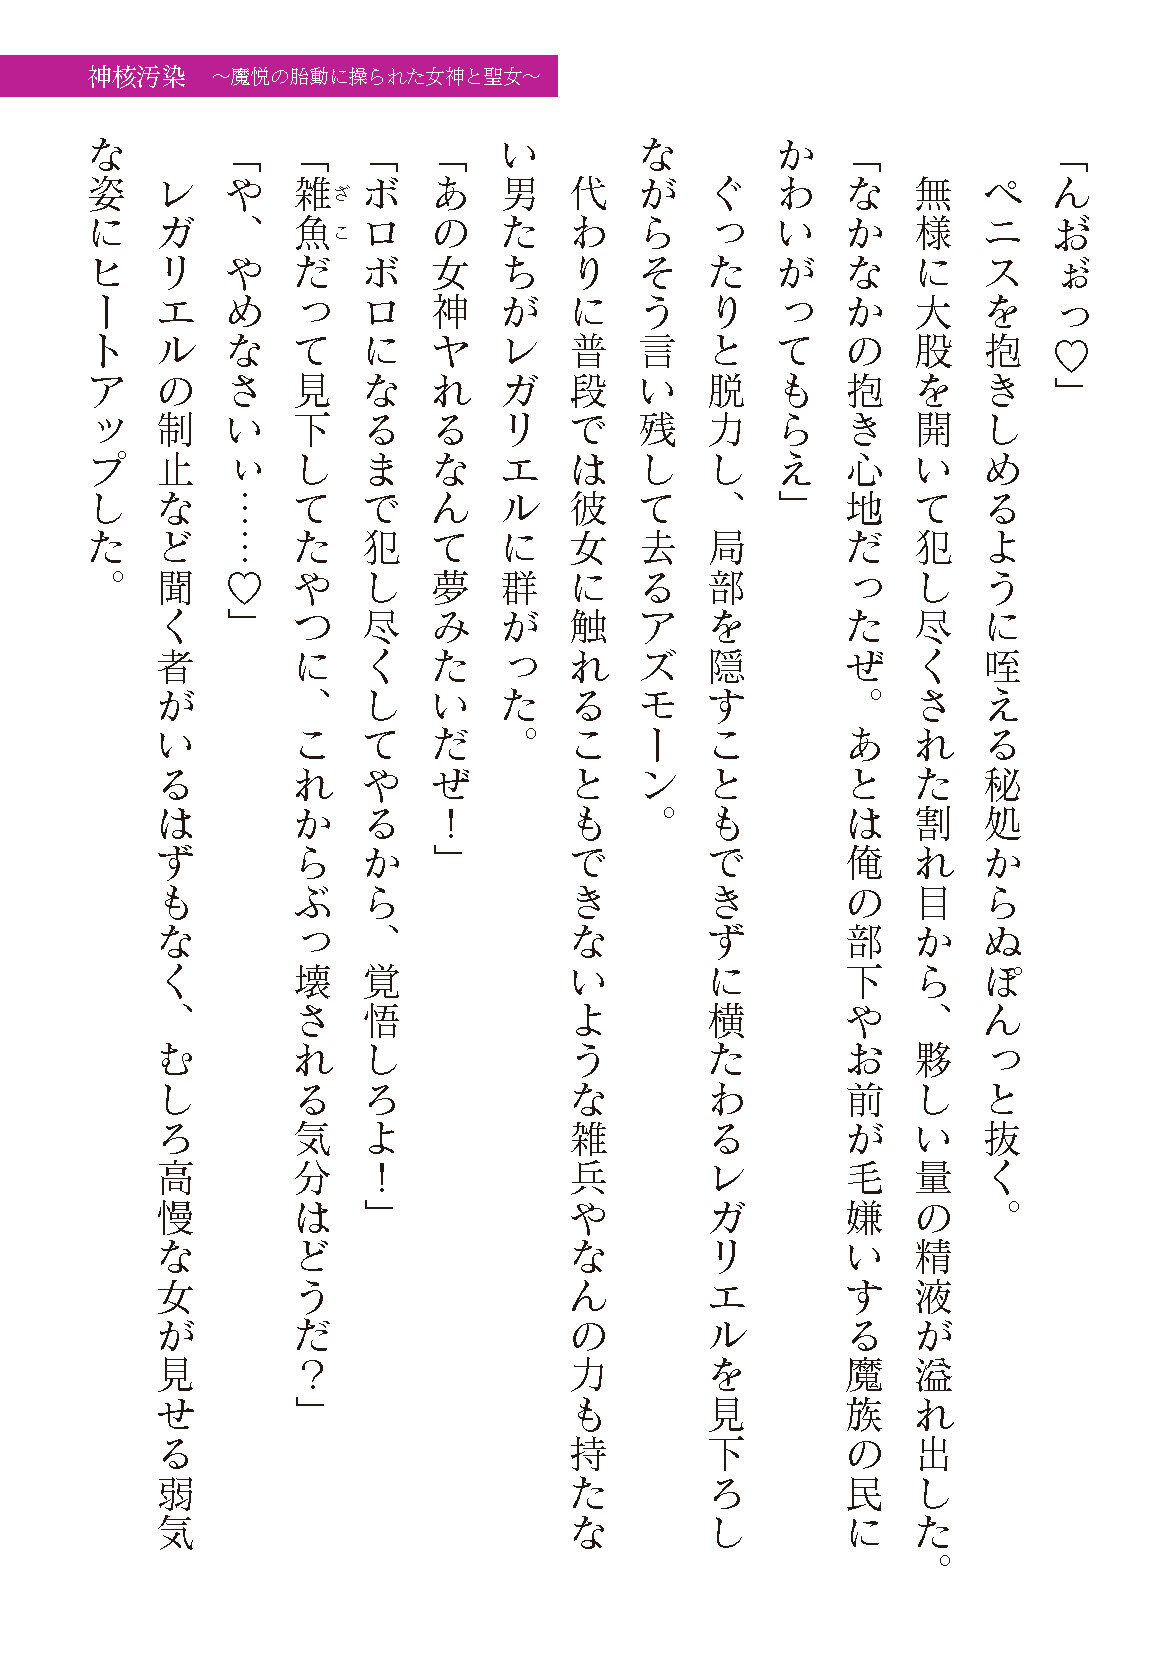 神核汚染　～魔悦の胎動に操られた女神と聖女～
「んお゙ぉっ♡」
　ペニスを抱きしめるように咥える秘処からぬぽんっと抜く。
　無様に大股を開いて犯し尽くされた割れ目から、夥しい量の精液が溢れ出した。
「なかなかの抱き心地だったぜ。あとは俺の部下やお前が毛嫌いする魔族の民に
かわいがってもらえ」
　ぐったりと脱力し、局部を隠すこともできずに横たわるレガリエルを見下ろし
ながらそう言い残して去るアズモーン。
　代わりに普段では彼女に触れることもできないような雑兵やなんの力も持たな
い男たちがレガリエルに群がった。
「あの女神ヤれるなんて夢みたいだぜ！」
「ボロボロになるまで犯し尽くしてやるから、覚悟しろよ！」
「雑魚だって見下してたやつに、これからぶっ壊される気分はどうだ？」
ざこ
「や、やめなさいぃ……♡」
　レガリエルの制止など聞く者がいるはずもなく、むしろ高慢な女が見せる弱気
な姿にヒートアップした。